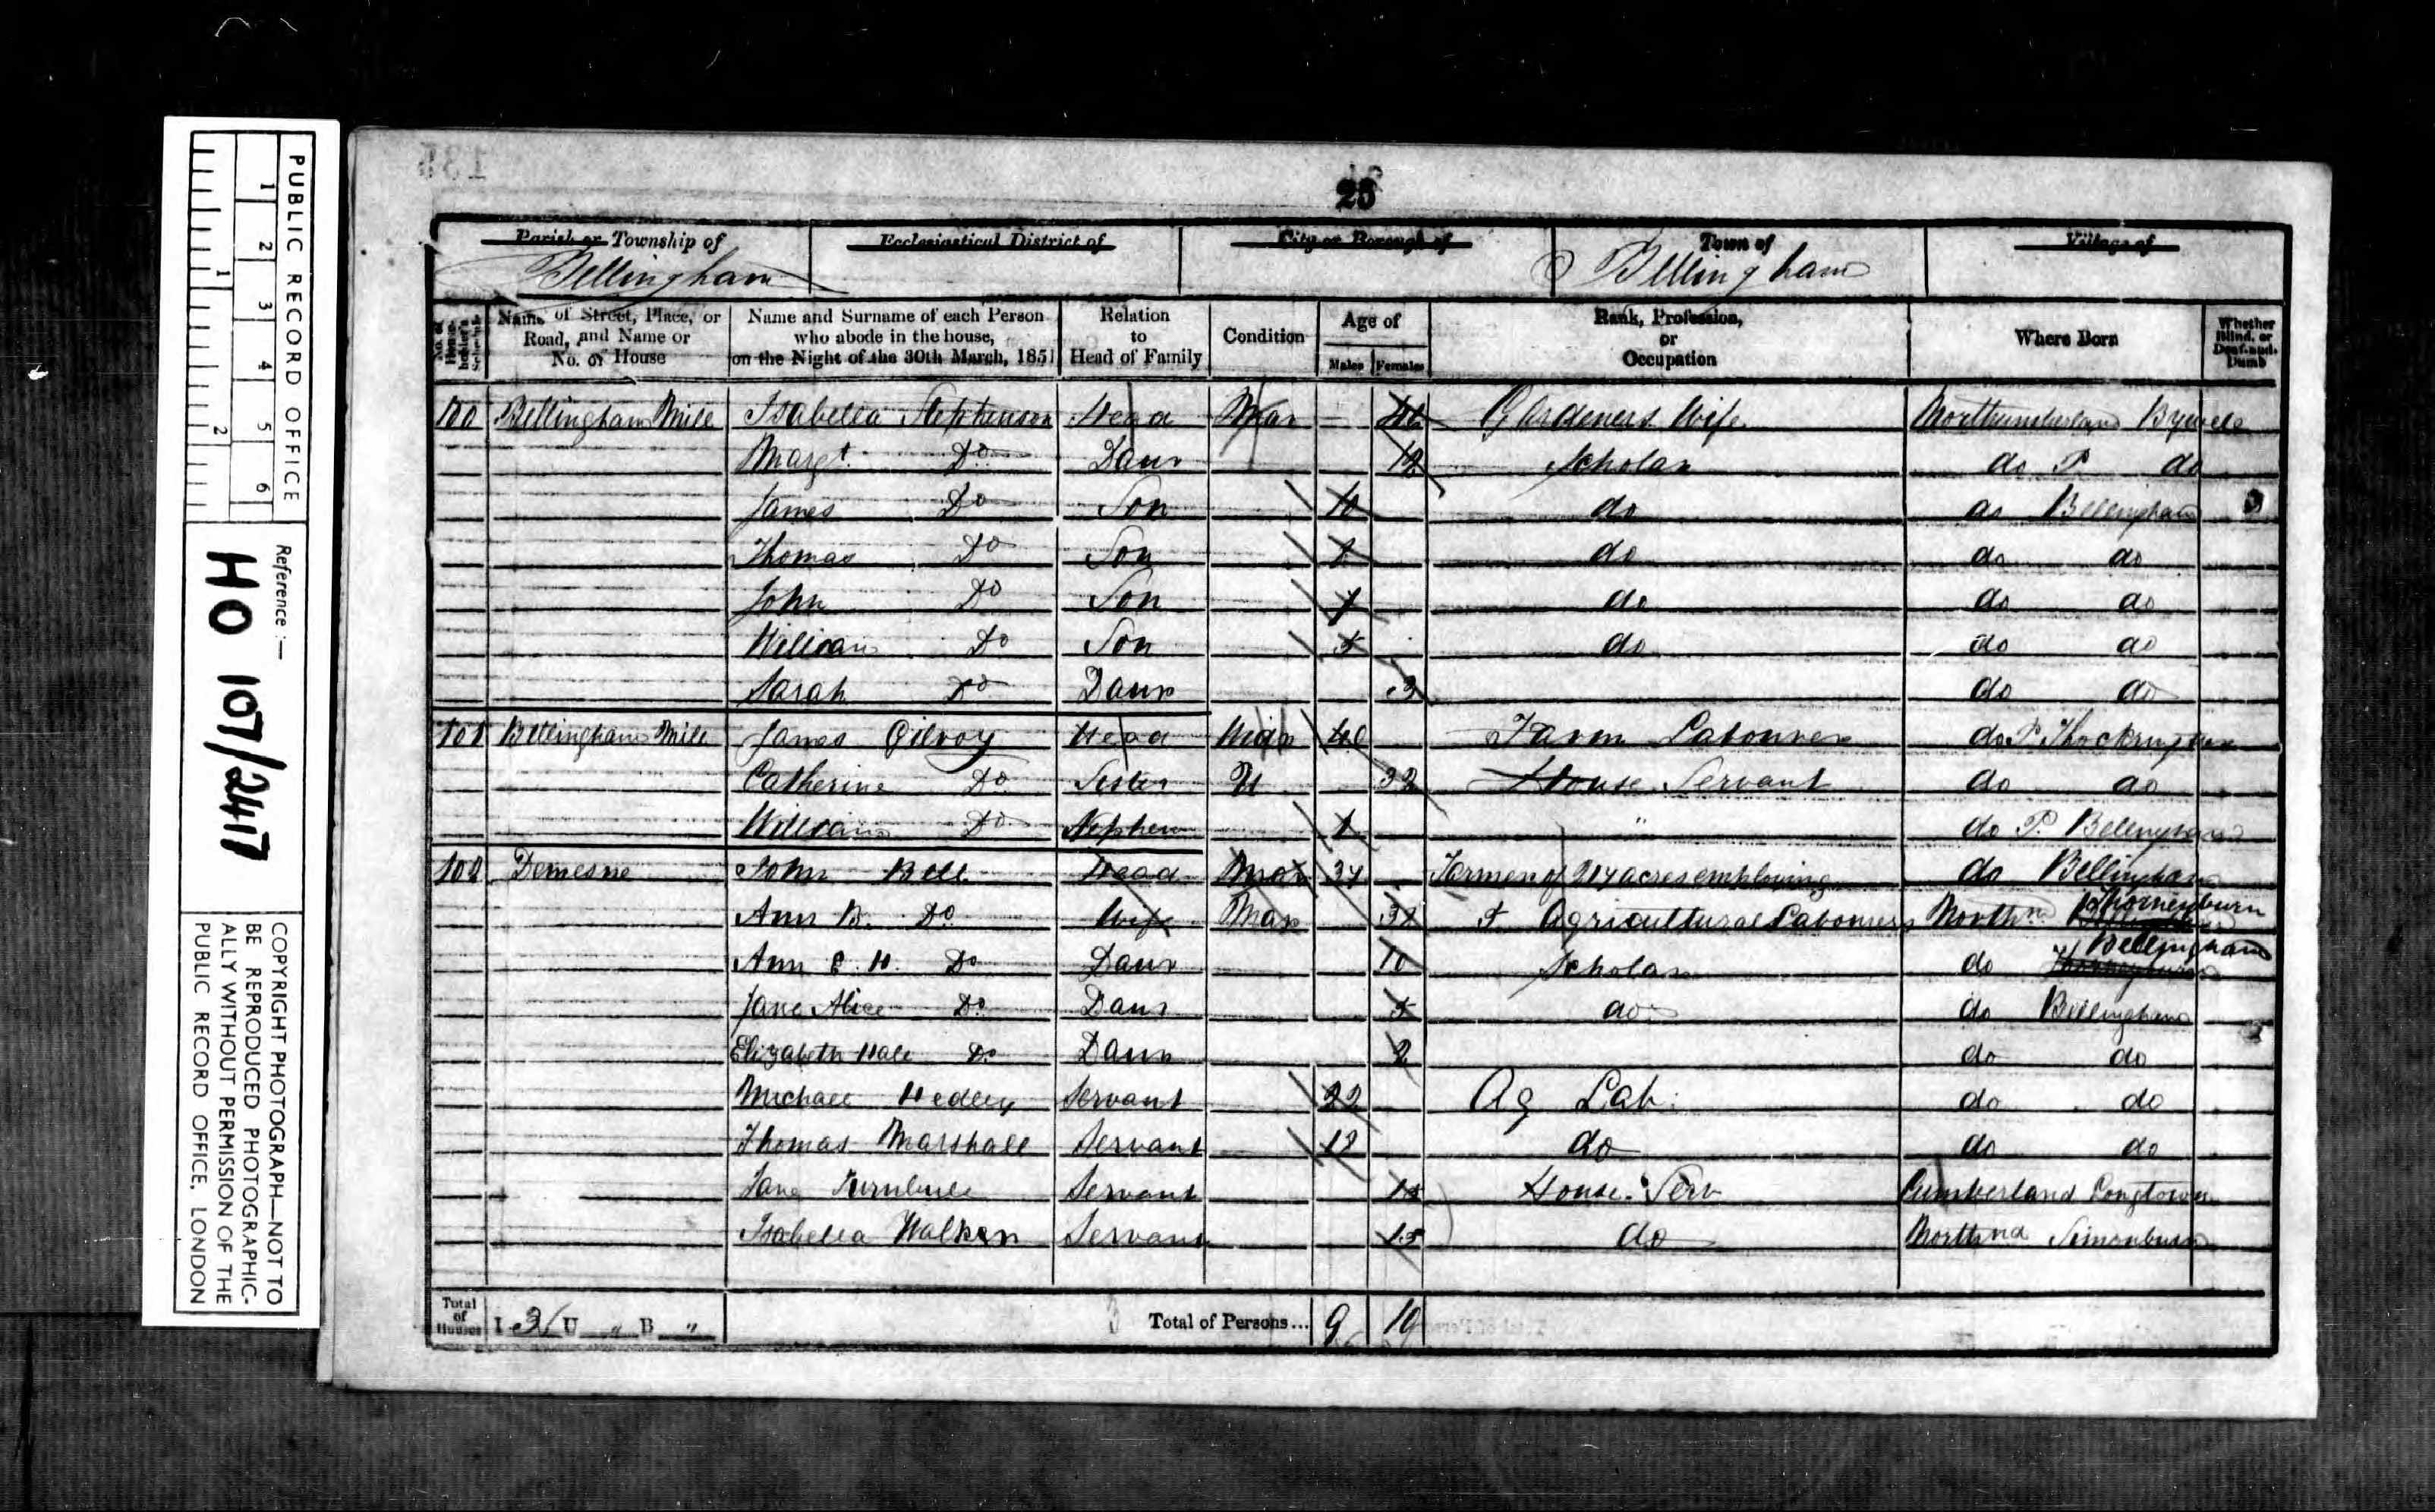 PUBLIC RECORD OFFICE
1 2 3 4 5 6
1 2
Reference :—
HO 107/2417
COPYRIGHT PHOTOGRAPH—NOT TO
BE REPRODUCED PHOTOGRAPHIC-
ALLY WITHOUT PERMISSION OF THE
PUBLIC RECORD OFFICE, LONDON
Parish or Township of Ecclesiastical District of City or Borough of Town of Village of
Bellingham Bellingham
No. of House-holder's Schedule Name of Street, Place, or Road, and Name or No. of House Name and Surname of each Person who abode in the house, on the Night of the 30th March, 1851 Relation to Head of Family Condition Age of Males Females Rank, Profession, or Occupation Where Born Whether Blind, or Deaf-and-Dumb
100 Bellingham Mill Isabella Stephenson Head Mar Gardeners Wife Northumberland Bywell
Margt. Do Daur 12 Scholar do P do
James Do Son 10 do do Bellingham
Thomas Do Son do do do
John Do Son 7 do do do
William Do Son 5 do do do
Sarah Do Daur 3 do do
101 Bellingham Mill James Gilroy Head Farm Labourer do P. Thockrington
Catherine Do Sister U 32 House Servant do do
William Do Nephew 1 " do P. Bellingham
102 Demesne John Bell Head Mar 34 Farmer of acres employing do Bellingham
Ann B. Do Wife Mar Agricultural Labourers Northd Thorneyburn
Ann E. H. Do Daur 10 Scholar do Bellingham
Jane Alice Do Daur 5 do do Bellingham
Elizabeth Hall Do Daur 2 do do
Michael Hedley Servant 22 Ag Lab. do do
Thomas Marshall Servant do do do
Jane Turnbull Servant House Serv Cumberland Longtown
Isabella Walker Servant 15 do Northnd Simonburn
Total of Houses I 3 U " B " Total of Persons... 9 10